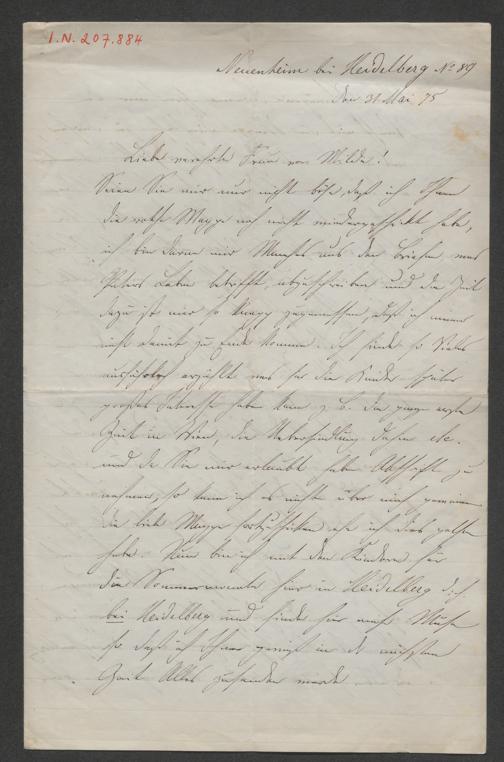 I.N. 207.884
Neuenheim bei Heidelberg No 89
Den 31 Mai 75
Liebe verehrte Frau von Milde!
Seien Sie mir nur nicht böse, daß ich Ihnen
die rothe Mappe noch nicht wiedergeschickt habe,
ich bin daran mir Manches aus den Briefen was
Peters Leben betrifft, abzuschreiben und die Zeit
dazu ist mir so knapp zugemessen, daß ich immer
nicht damit zu Ende komme. Ich finde so Vieles
ausführlich erzählt was für die Kinder später
großes Interesse haben kann z. B. die ganze erste
Zeit in Wien, die Uebersiedlung dahin etc.
und da Sie mir erlaubt haben Abschrift zu
nehmen, so kann ich es nicht über mich gewinnen
die liebe Mappe fortzuschicken ehe ich dies gethan
habe. Nun bin ich mit den Kindern für
die Sommermonate hier in Heidelberg d. h.
bei Heidelberg und finde hier mehr Muße
so daß ich Ihnen gewiß in der nächsten
Zeit Alles zusenden werde